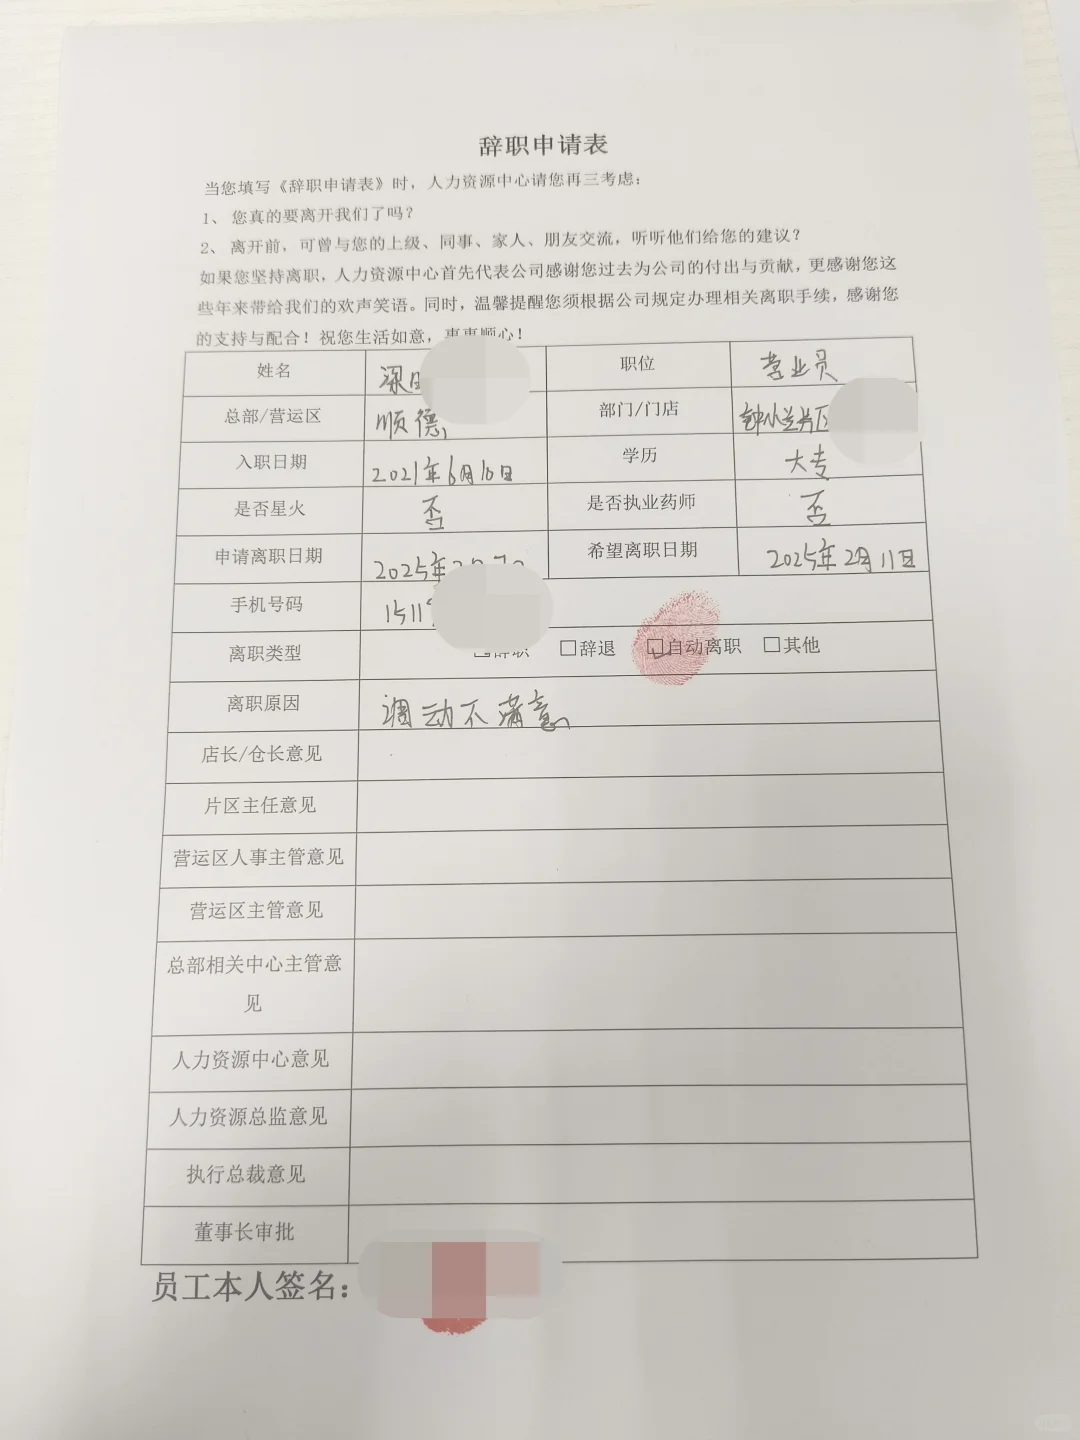 辞职申请表
当您填写《辞职申请表》时，人力资源中心请您再三考虑：
1、 您真的要离开我们了吗？
2、 离开前，可曾与您的上级、同事、家人、朋友交流，听听他们给您的建议？
如果您坚持离职，人力资源中心首先代表公司感谢您过去为公司的付出与贡献，更感谢您这
些年来带给我们的欢声笑语。同时，温馨提醒您须根据公司规定办理相关离职手续，感谢您
的支持与配合！祝您生活如意，事事顺心！
姓名 职位 营业员
总部/营运区 顺德 部门/门店
入职日期 2021年6月10日 学历 大专
是否星火 否 是否执业药师 否
申请离职日期 2025年 希望离职日期 2025年2月11日
手机号码 1511
离职类型 □辞职 □辞退 □自动离职 □其他
离职原因 调动不满意
店长/仓长意见
片区主任意见
营运区人事主管意见
营运区主管意见
总部相关中心主管意
见
人力资源中心意见
人力资源总监意见
执行总裁意见
董事长审批
员工本人签名：